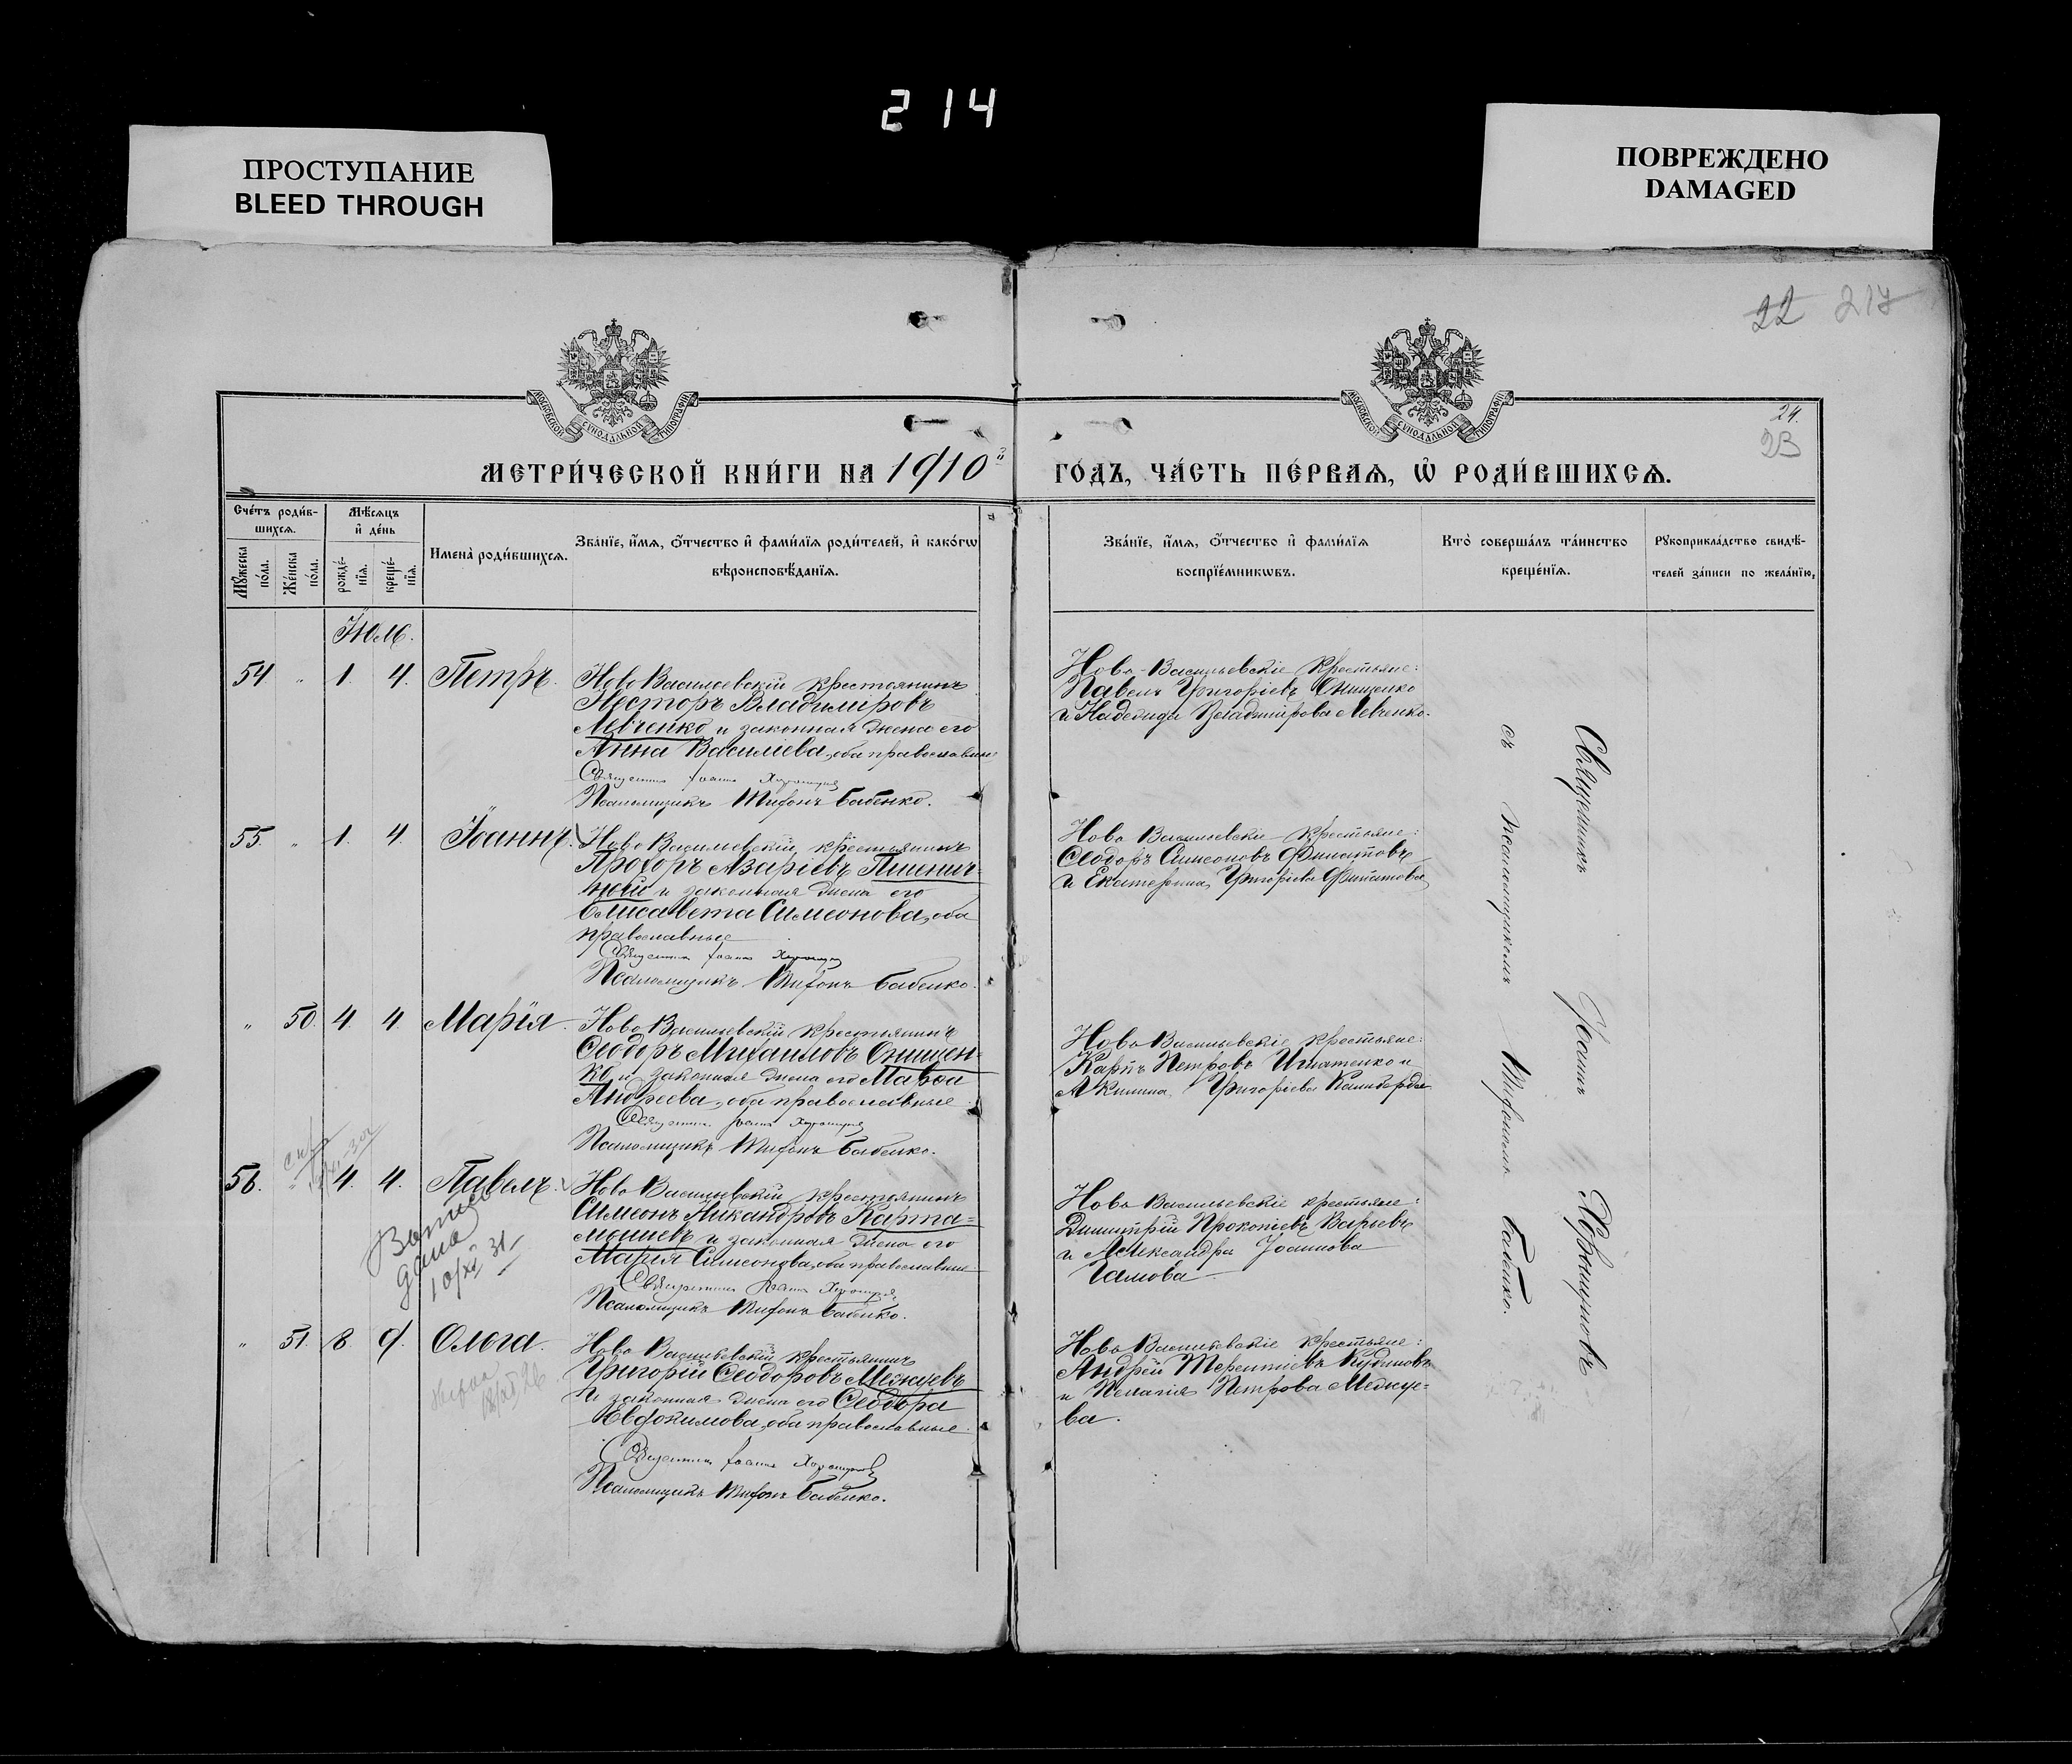 214
ПРОСТУПАНИЕ
BLEED THROUGH
ПОВРЕЖДЕНО
DAMAGED
22 217
МОСКОВСКОЙ СѴНОДАЛЬНОЙ ТИПОГРАФІИ
МОСКОВСКОЙ СѴНОДАЛЬНОЙ ТИПОГРАФІИ
24.
23
МЕТРИ́ЧЕСКОЙ КНИ́ГИ НА 1910й
ГО́ДЪ, ЧА́СТЬ ПЕ́РВАѦ, Ѡ҆ РОДИ́ВШИХСѦ.
Сче́тъ роди́в-
шихсѧ.
Мꙋ́жеска по́ла.
Же́нска по́ла.
Мѣ́сѧцъ
и҆ де́нь
рожде́-
нїѧ.
креще́-
нїѧ.
Имена̀ роди́вшихсѧ.
Зва́нїе, и҆́мѧ, ѻ҆́тчество и҆ фами́лїѧ роди́телей, и҆ како́гѡ
вѣроисповѣ́данїѧ.
Зва́нїе, и҆́мѧ, ѻ҆́тчество и҆ фами́лїѧ
воспрїе́мникѡвъ.
Кто̀ соверша́лъ та́инство
креще́нїѧ.
Рꙋкоприкла́дство свидѣ́-
телей за́писи по жела́нїю.
Іюль.
54 " 1. 4. Петръ.
Ново Васильевскій крестьянинъ
Несторъ Владиміровъ
Левченко и законная жена его
Анна Васильева, оба православные
Священникъ Іоаннъ
Псаломщикъ Мифонъ Бабенко.
Ново-Васильевскіе крестьяне:
Павелъ Григорьевъ Онищенко
и Надежда Владимірова Левченко.
55. " 1. 4. Іоаннъ.
Ново Васильевскій крестьянинъ
Прохоръ Азаріевъ Пшенич-
ный и законная жена его
Елисавета Симеонова, оба
православные
Священникъ Іоаннъ
Псаломщикъ Мифонъ Бабенко.
Ново Васильевскіе крестьяне:
Ѳеодоръ Симеоновъ Филатовъ
и Екатерина Григорьева Филатова
" 50. 4. 4. Марія.
Ново Васильевскій крестьянинъ
Ѳеодоръ Михаиловъ Онищен-
ко и законная жена его Марѳа
Андреева, оба православные
Священникъ Іоаннъ
Псаломщикъ Мифонъ Бабенко.
Ново Васильевскіе крестьяне:
Карпъ Петровъ Игнатенко и
Акилина Григорьева
56. " 4. 4. Павелъ.
дана
10/XI 31
Ново Васильевскій крестьянинъ
Симеонъ Никандровъ Карта-
мышевъ и законная жена его
Марія Симеонова, оба православные
Священникъ Іоаннъ
Псаломщикъ Мифонъ Бабенко.
Ново Васильевскіе крестьяне:
Димитрій Прокопіевъ
и Александра Іоаннова
Гамова
" 51. 8. 9. Ольга.
Ново Васильевскій крестьянинъ
Григорій Ѳеодоровъ Межуевъ
и законная жена его Ѳеодора
Евфимова, оба православные
Священникъ Іоаннъ
Псаломщикъ Мифонъ Бабенко.
Ново Васильевскіе крестьяне:
Андрей Терентіевъ Кудиновъ
и Пелагія Петрова Межуе-
ва.
Священникъ Іоаннъ
съ псаломщикомъ Мифономъ Бабенко.